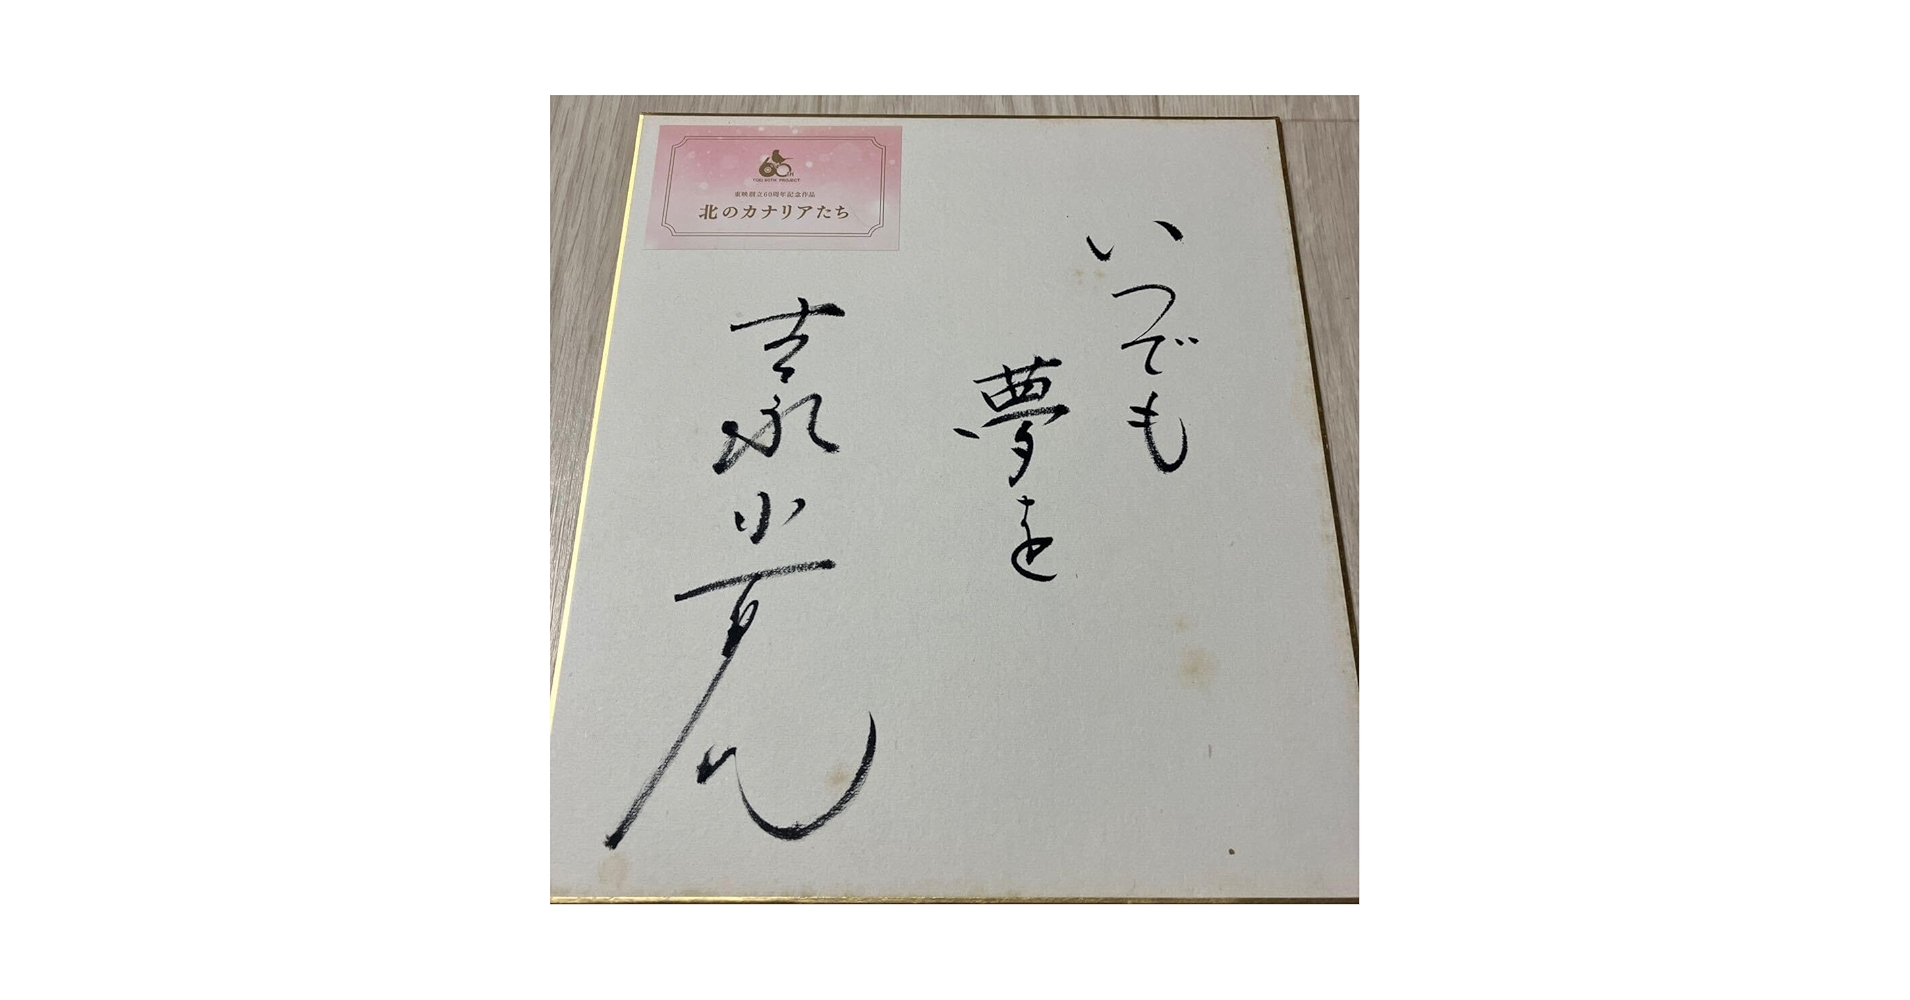 60TH
TOEI 60TH PROJECT
東映創立60周年記念作品
北のカナリアたち
いつでも
夢を
吉永小百合